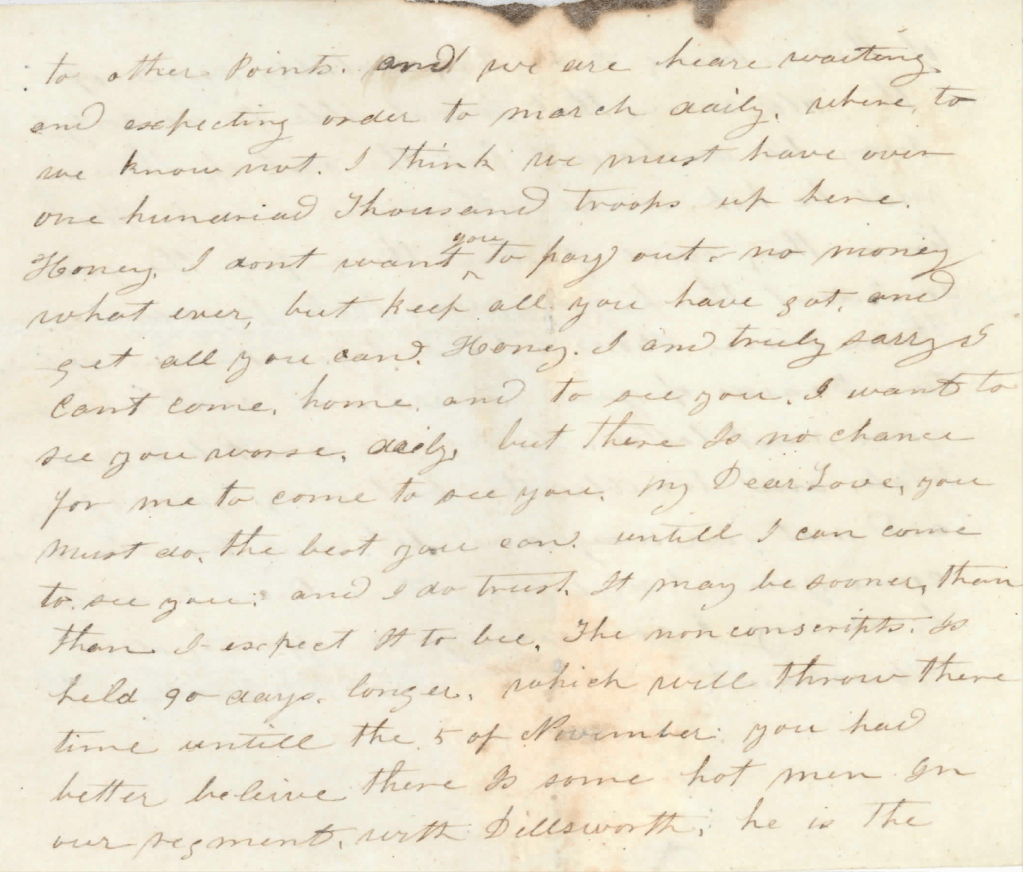 to other Points. and we are heare waiting
and expecting order to march daily. where, to
we know not. I think we must have over
one hundriad Thousand troops up here.
Honey, I dont want you to pay out no money
what ever, but keep all you have got, and
get all you can. Honey. I am truly sarry I
Cant come, home. and to see you. I want to
see you worse, daily, but there Is no chance
for me to come to see you. my Dear Love, you
must do, the best you can. untill I can come
to see you. and I do trust. It may be sooner, than
than I expect It to bee. The nonconscripts. Is
held 90 days. longer. which will throw there
time untill the 5 of November. you had
better beleive there Is some hot men In
our regment. with Dillsworth. he is the